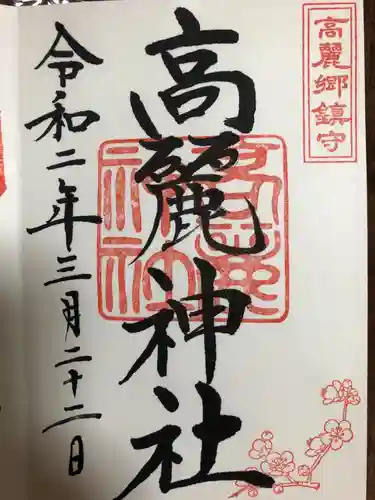 高麗郷鎮守
高麗神社
令和二年三月二十二日
高麗神社